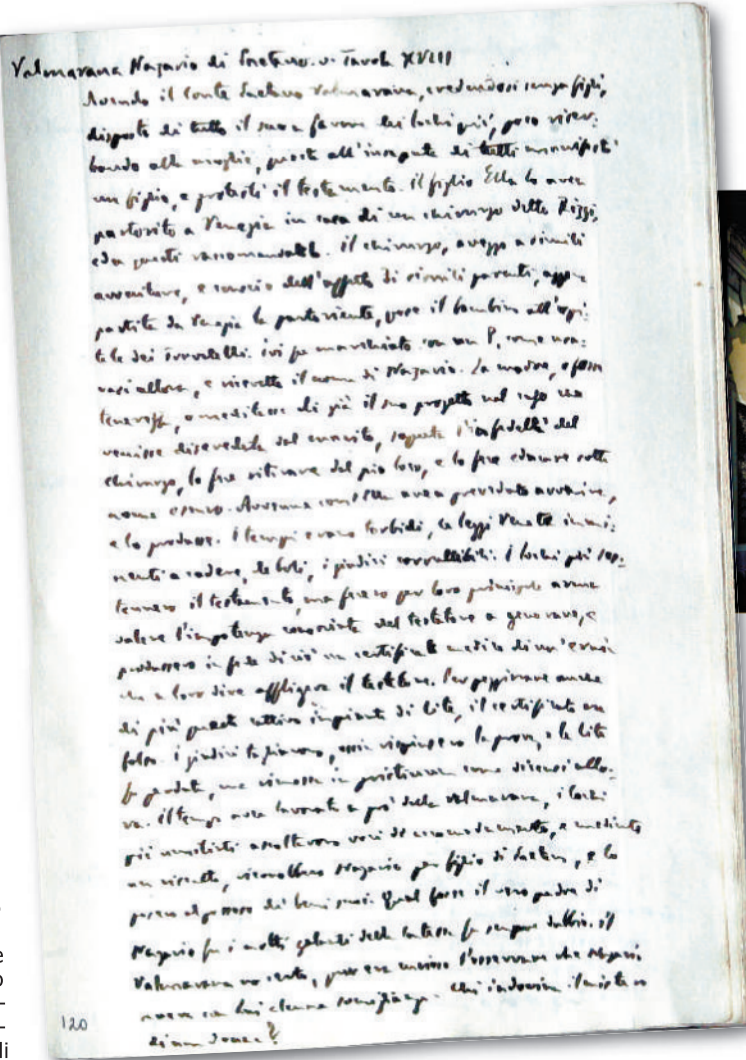 Valmarana Nazario di Gaetano. v. Tavola XVIII
Avendo il Conte Gaetano Valmarana, credendosi senza figli,
disposto di tutto il suo a favore dei luoghi pii, poco riser:
bando alla moglie, questa all'insaputa di tutti manifestò
un figlio, e protestò il testamento. Il figlio Ella lo avea
partorito a Venezia in casa di un chirurgo detto Rizzi,
e da questi raccomandato. Il chirurgo, avvezzo a simili
avventure, e conscio dell'affetto di simili parenti, appena
partita da Venezia la partoriente, pose il bambino all'Ospi:
tale dei . Ivi fu marchiato con un P, come usa:
vasi allora, e ricevette il nome di Nazario. La madre, o fosse
tenerezza, o meditasse di già il suo progetto nel caso che
venisse diseredata dal marito, saputa l'infedeltà del
chirurgo, lo fece ritirare dal pio loco, e lo fece educare sotto
nome . Avvenne com'Ella avea preveduto avvenire,
e lo produsse. I tempi erano torbidi, le leggi Venete immi:
nenti a cadere, deboli, i giudici corruttibili. I luochi pii sos:
tennero il testamento, ma fecero per loro principale arma
valere l'impotenza del testatore a generare, e
produssero in fede di ciò un certificato medico di un'ernia
che a loro dire affliggeva il testatore. Per peggiorare anche
di più questo cattivo impianto di lite, il certificato era
falso. I giudici , respinsero la prova, e la lite
fu perduta, ma rimessa in pristinum come dicevasi allo:
ra. Il tempo avea lavorato a pro' della Valmarana, i lochi
pii ascoltarono voci di accomodamento, e mediante
un riscatto, riconobbero Nazario per figlio di Gaetano, e lo
posero al possesso dei beni suoi. Qual fosse il vero padre di
Nazario fra i molti galanti della Contessa fu sempre dubbio. Il
Valmarana no certo, pure era curioso l'osservare che Nazario
avea con lui alcuna somiglianza. Chi indovina il mistero
di una donna?
120
e
o
-
-
di